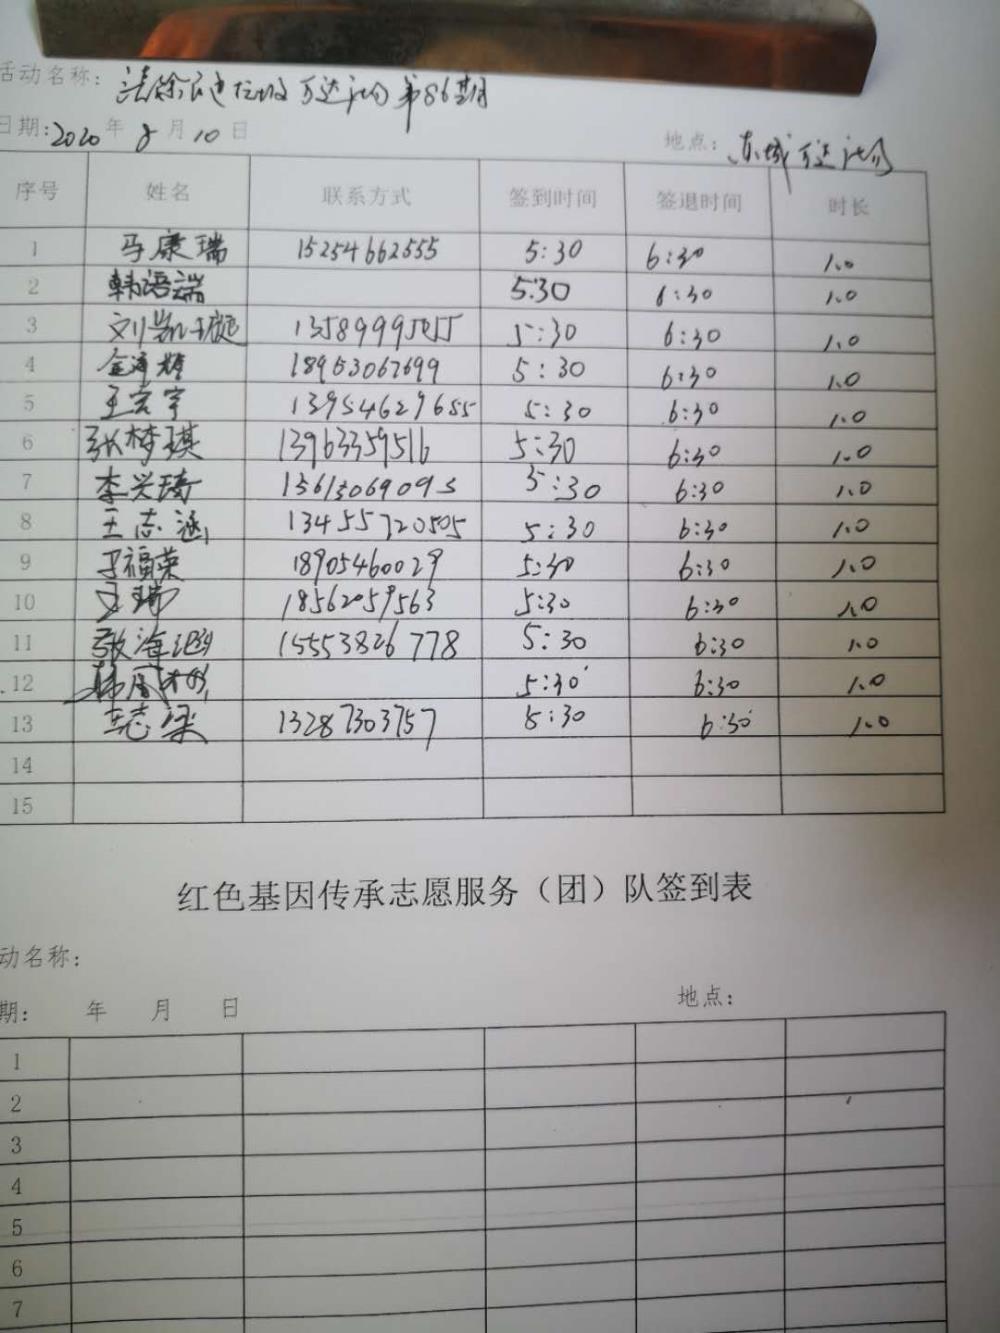 活动名称: 清除 垃圾 万达 第86期
日期:2020年8月10日 地点: 东城万达
序号 姓名 联系方式 签到时间 签退时间 时长
1 马康瑞 15254662555 5:30 6:30 1.0
2 韩语端 5:30 6:30 1.0
3 刘凯 5:30 6:30 1.0
4 金 18953067699 5:30 6:30 1.0
5 王宏宇 13954629655 5:30 6:30 1.0
6 张梦琪 13963359516 5:30 6:30 1.0
7 李兴琦 15613069095 5:30 6:30 1.0
8 王志涵 13455720505 5:30 6:30 1.0
9 于福荣 18905460029 5:30 6:30 1.0
10 王瑞 18562059563 5:30 6:30 1.0
11 张海 15553826778 5:30 6:30 1.0
12 韩 5:30 6:30 1.0
13 志梁 13287303757 5:30 6:30 1.0
14
15
红色基因传承志愿服务（团）队签到表
动名称:
期: 年 月 日 地点:
1
2
3
4
5
6
7